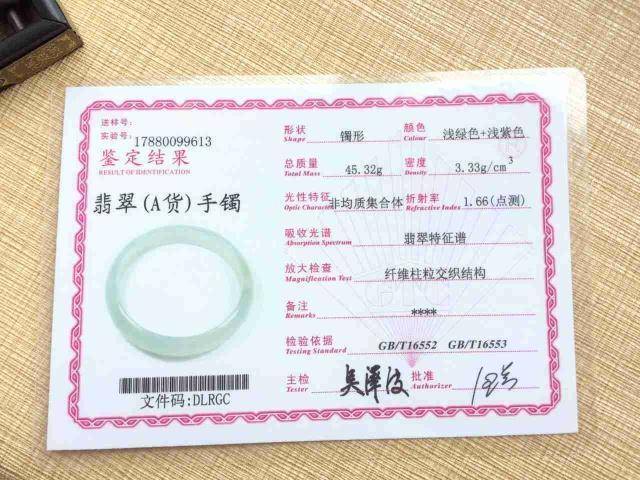 送样号:
实验号: 17880099613
鉴定结果
RESULT OF IDENTIFICATION
翡翠(A货)手镯
文件码:DLRGC
形状 镯形 颜色 浅绿色+浅紫色
Shape Colour
总质量 45.32g 密度 3.33g/cm³
Total Mass Density
光性特征 非均质集合体 折射率 1.66(点测)
Optic Character Refractive Index
吸收光谱 翡翠特征谱
Absorption Spectrum
放大检查 纤维柱粒交织结构
Magnification Test
备注 ****
Remarks
检验依据 GB/T16552 GB/T16553
Testing Standard
主检 批准
Tester Authorizer